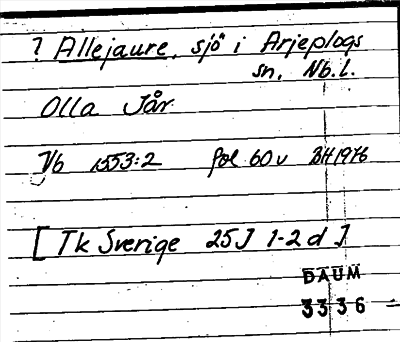 ? Allejaure, sjö i Arjeplogs
sn, Nb.l.
Olla Jår
Vb 1553:2 fol 60v BH1976
[Tk Sverige 25J 1-2 d]
DAUM
3336